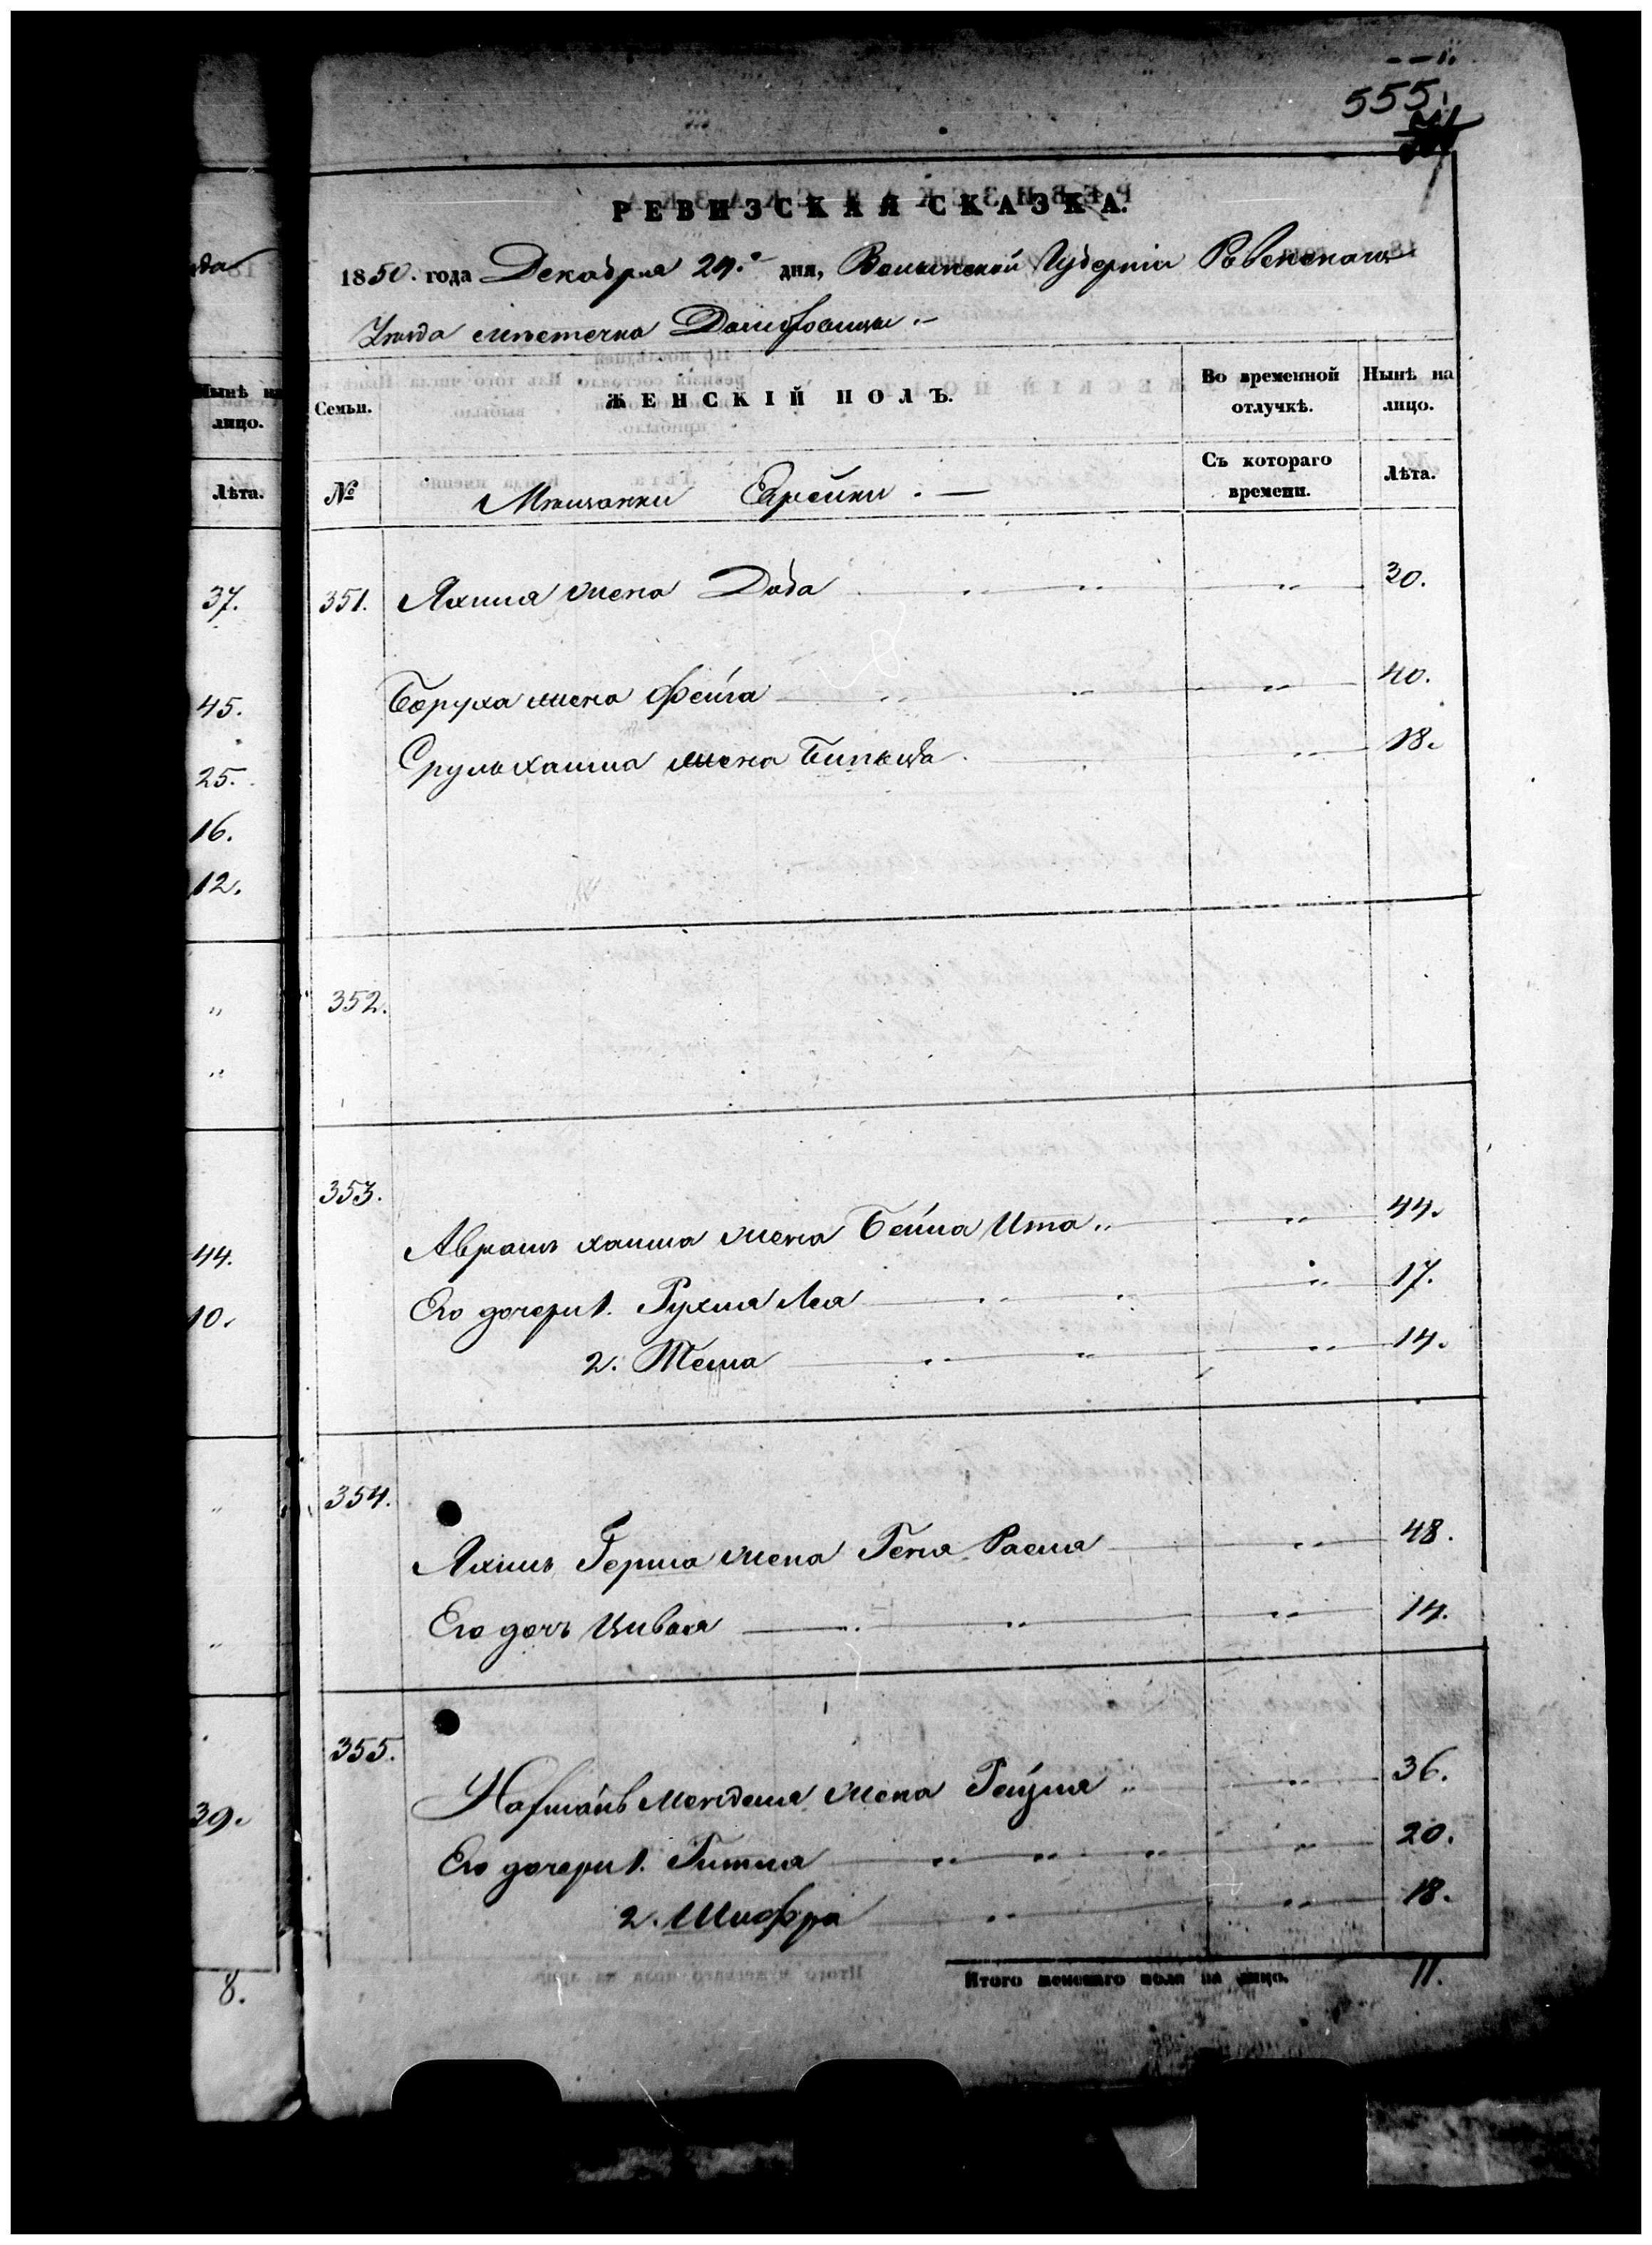 555.
РЕВИЗСКАЯ СКАЗКА.
1850. года Декабря 29.го дня, Волынской Губерніи Ровенскаго
Уѣзда мѣстечка Домбровицы .—
Нынѣ на лицо.
Лѣта.
37.
45.
25.
16.
12.
„
„
44.
10.
„
„
39.
8.
Семьи. ЖЕНСКІЙ ПОЛЪ. Во временной отлучкѣ. Нынѣ на лицо.
№ Мѣщанки Еврейки . — Съ котораго времени. Лѣта.
351. Яхима жена Доба „ „ 30.
Боруха жена Фейга „ „ „ 40.
Срульхаима жена „ 18.
352.
353.
Аврамъ хаима жена Бейла Ита „ „ 44.
Его дочери 1. Рухля Лея „ „ „ 17.
2. Тема „ „ „ 14.
354.
Яхимъ Герша жена Геня Расия „ 48.
Его дочь Цивья „ „ „ 14.
355.
жена Рейзля „ „ 36.
Его дочери 1. Гитля „ „ „ „ 20.
2. Шифра „ „ 18.
Итого женскаго пола на лицо. 11.